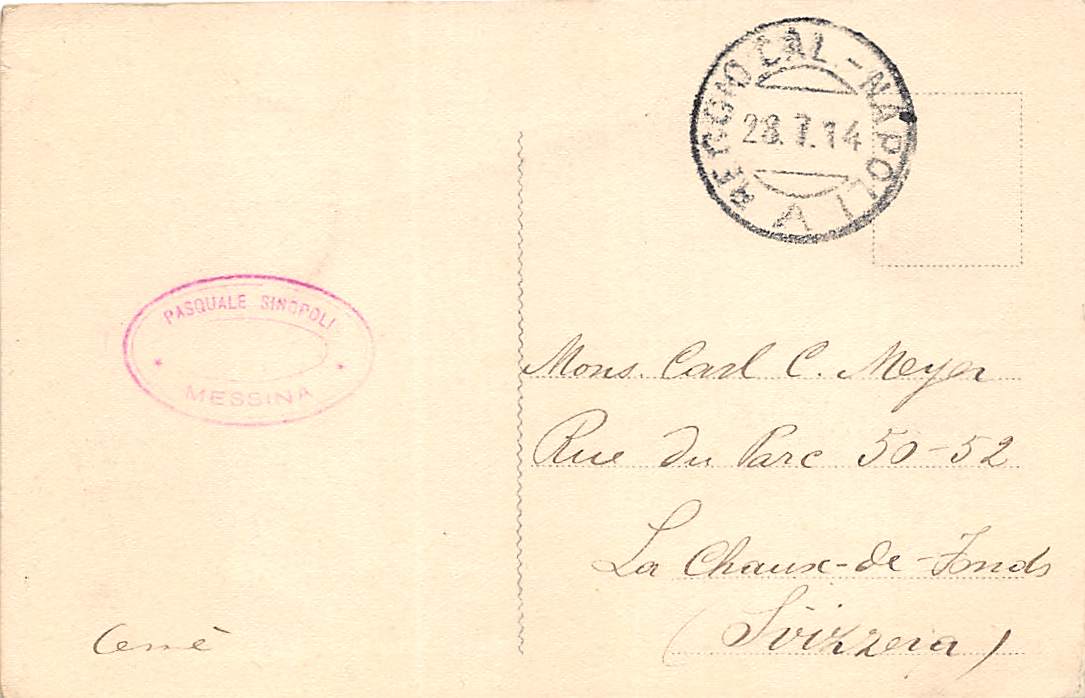 REGGIO CAL.-NAPOLI A
28.7.14
PASQUALE SINOPOLI
MESSINA
Mons. Carl C. Meyer
Rue du Parc 50-52
La Chaux-de-Fonds
(Svizzera)